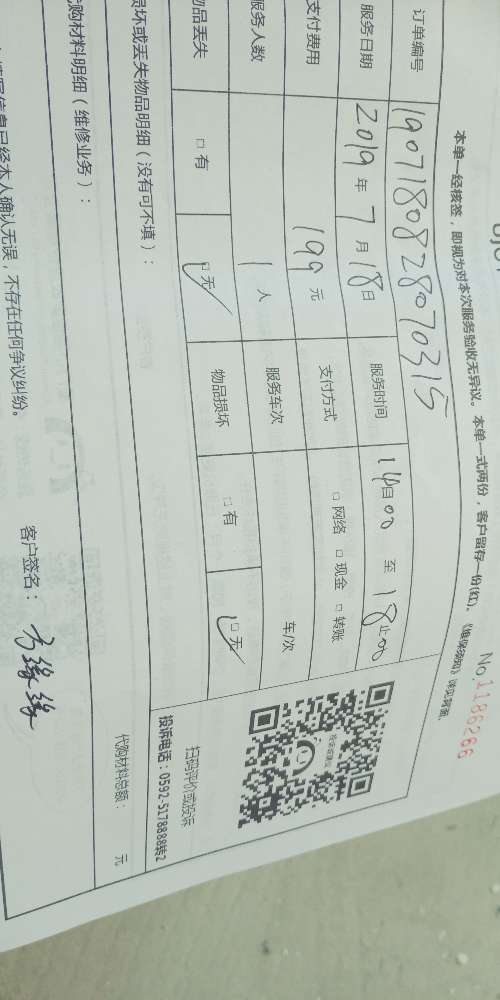 No.1186266
本单一经核签，即视为对本次服务验收无异议。本单一式两份，客户留存一份(红)。《维保须知》详见背面。
订单编号 1907180828070315
服务日期 2019 年 7 月 18 日 服务时间 14 自 00 至 18 止 00
支付费用 199 元 支付方式 □ 网络 □ 现金 □ 转账
服务人数 1 人 服务车次 车/次
物品丢失 □ 有 □ 无 物品损坏 □ 有 □ 无
投诉或建议
扫码评价或投诉
投诉电话：0592-5178888转2
损坏或丢失物品明细（没有可不填）：
代购材料明细（维修业务）：
代购材料总额： 元
信息已经本人确认无误，不存在任何争议纠纷。
客户签名： 方缘缘